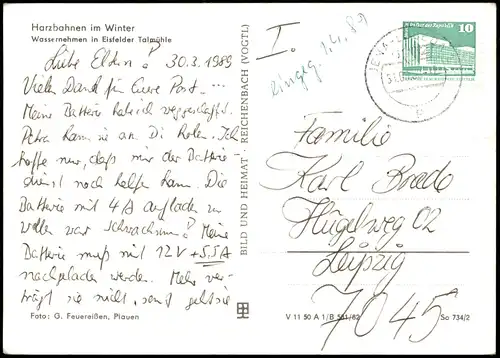 Harzbahnen im Winter
Wassernehmen in Eisfelder Talmühle
Liebe Eltern! 30.3.1989
Vielen Dank für Eure Post...
Meine Batterie habe ich weggeschafft.
Petra kann sie am Di holen. Ich
hoffe nur, daß mir der Batterie-
dienst noch helfen kann. Die
Batterie mit 4A aufladen zu
wollen war Schwachsinn! Meine
Batterie muß mit 12V + 5,5A
nachgeladen werden. Mehr ver-
trägt sie nicht, sonst geht sie
Foto: G. Feuereißen, Plauen
BILD UND HEIMAT · REICHENBACH (VOGTL)
I.
eingeg. 1.4.89
10
JENA
Familie
Karl Brade
Hügelweg 02
Leipzig
7045
V 11 50 A 1/B 561/82 So 734/2